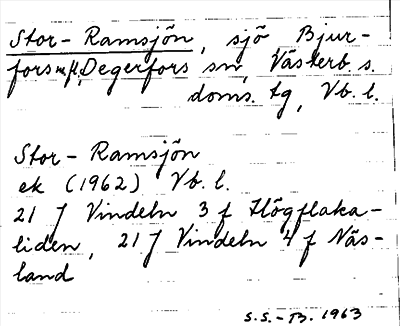 Stor-Ramsjön, sjö, Bjur-
fors m fl, Degerfors sn, Västerb. s.
doms. tg, Vb. l.
Stor-Ramsjön
ek (1962) Vb. l.
21 J Vindeln 3 f Högflaka-
liden, 21 J Vindeln 4 f Näs-
land
S.S.-B. 1963